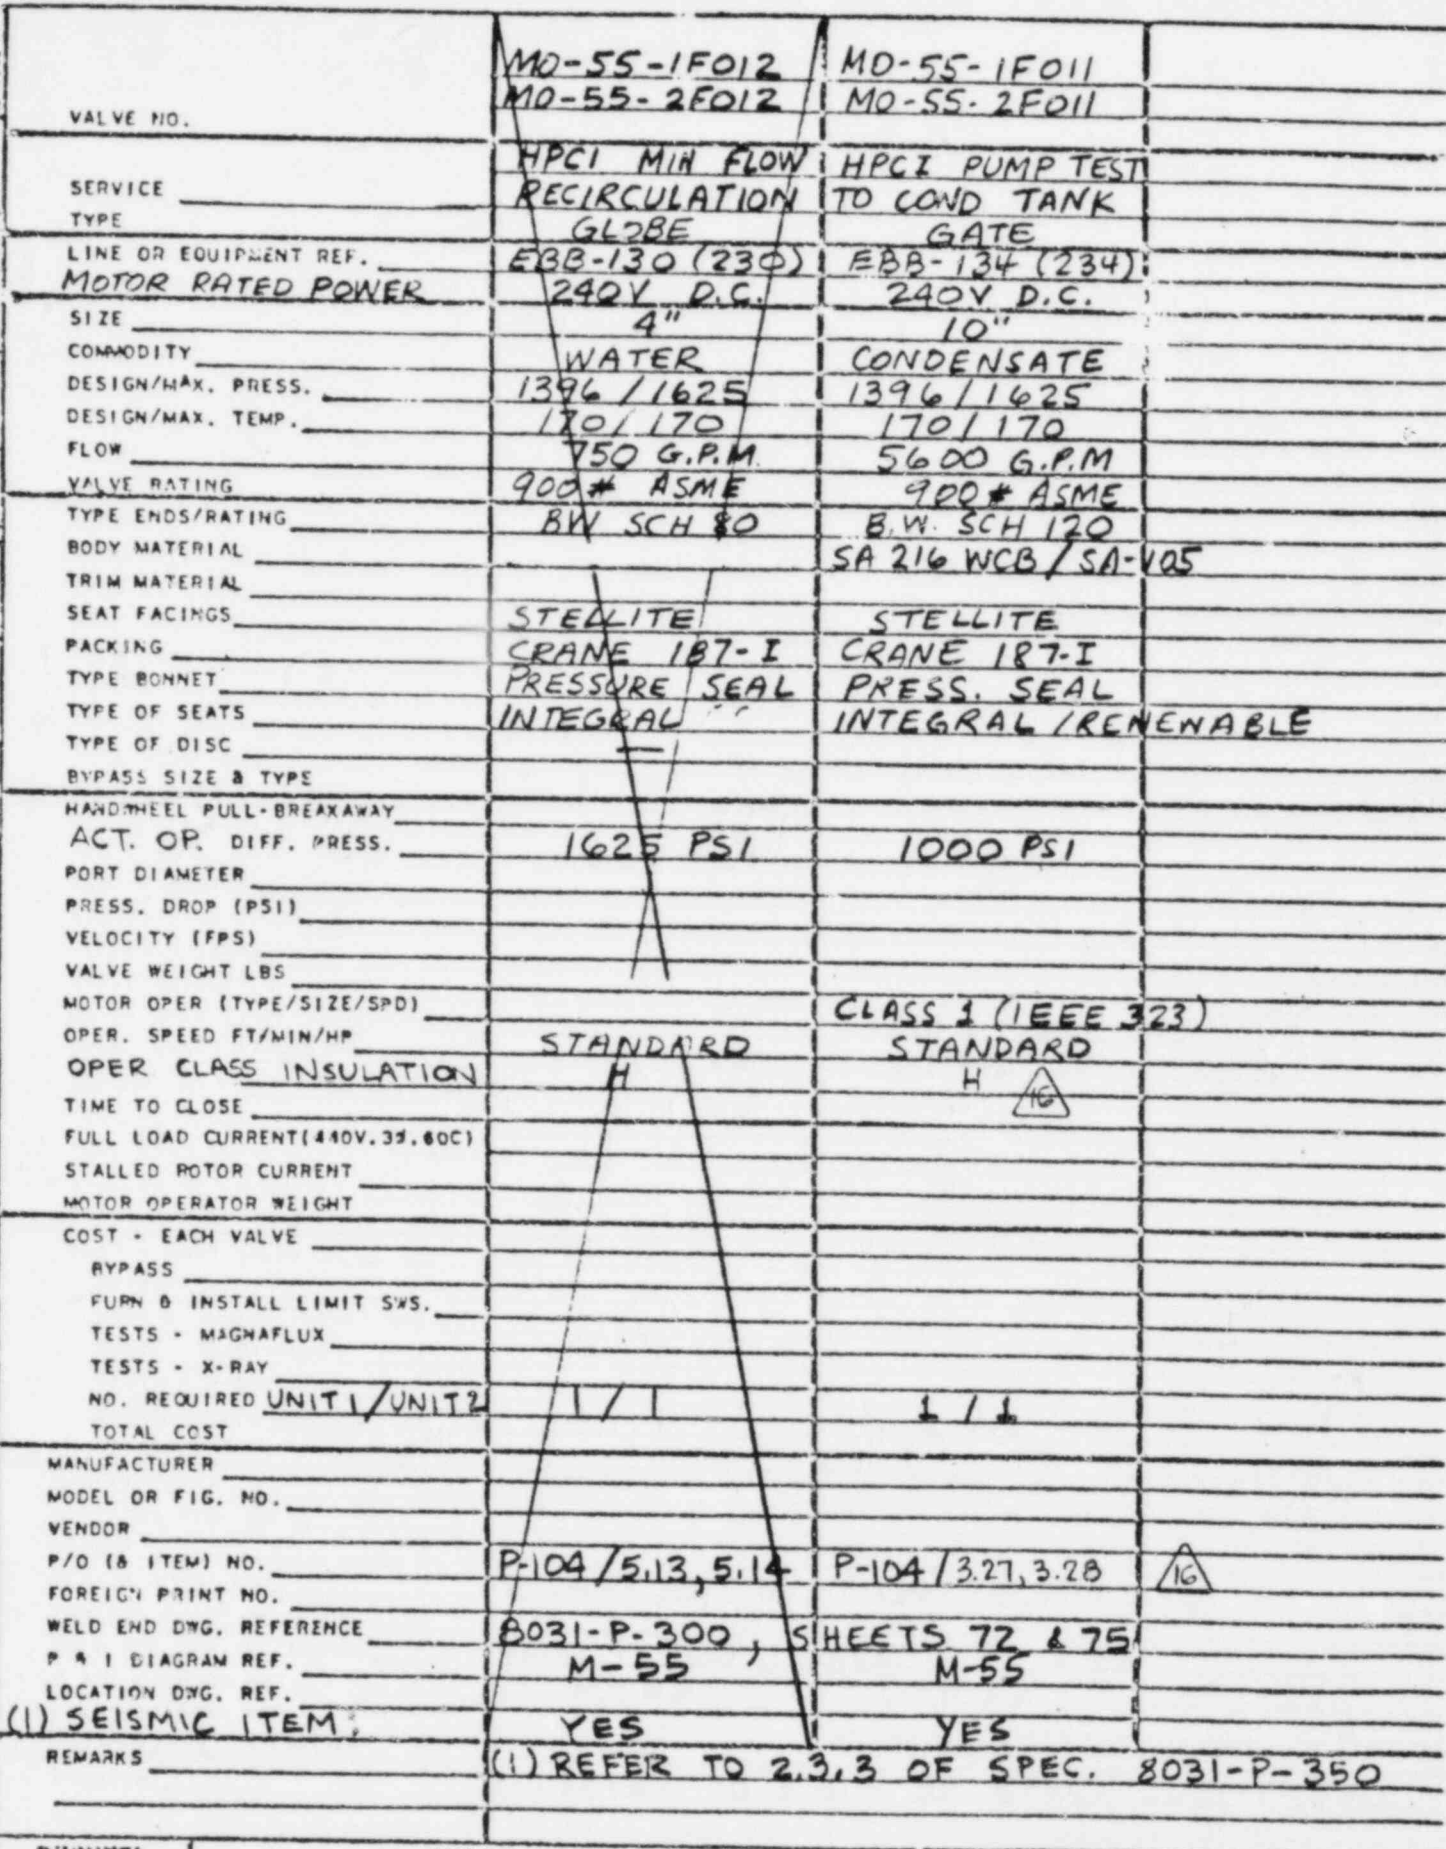 MO-55-1F012 MO-55-1F011
VALVE NO. MO-55-2F012 MO-55-2F011
HPCI MIN FLOW HPCI PUMP TEST
SERVICE RECIRCULATION TO COND TANK
TYPE GLOBE GATE
LINE OR EQUIPMENT REF. EBB-130 (230) EBB-134 (234)
MOTOR RATED POWER 240V D.C. 240V D.C.
SIZE 4" 10"
COMMODITY WATER CONDENSATE
DESIGN/MAX. PRESS. 1396/1625 1396/1625
DESIGN/MAX. TEMP. 170/170 170/170
FLOW 750 G.P.M. 5600 G.P.M
VALVE RATING 900# ASME 900# ASME
TYPE ENDS/RATING BW SCH 80 B.W. SCH 120
BODY MATERIAL SA 216 WCB/SA-105
TRIM MATERIAL
SEAT FACINGS STELLITE STELLITE
PACKING CRANE 187-I CRANE 187-I
TYPE BONNET PRESSURE SEAL PRESS. SEAL
TYPE OF SEATS INTEGRAL INTEGRAL/RENEWABLE
TYPE OF DISC —
BYPASS SIZE & TYPE
HANDWHEEL PULL-BREAKAWAY
ACT. OP. DIFF. PRESS. 1625 PSI 1000 PSI
PORT DIAMETER
PRESS. DROP (PSI)
VELOCITY (FPS)
VALVE WEIGHT LBS
MOTOR OPER (TYPE/SIZE/SPD) CLASS 1 (IEEE 323)
OPER. SPEED FT/MIN/HP STANDARD STANDARD
OPER CLASS INSULATION H H 16
TIME TO CLOSE
FULL LOAD CURRENT(440V.3Ø.60C)
STALLED ROTOR CURRENT
MOTOR OPERATOR WEIGHT
COST - EACH VALVE
BYPASS
FURN & INSTALL LIMIT SWS.
TESTS - MAGNAFLUX
TESTS - X-RAY
NO. REQUIRED UNIT 1/UNIT 2 1/1 1/1
TOTAL COST
MANUFACTURER
MODEL OR FIG. NO.
VENDOR
P/O (& ITEM) NO. P-104/5.13, 5.14 P-104/3.27, 3.28 16
FOREIGN PRINT NO.
WELD END DWG. REFERENCE 8031-P-300, SHEETS 72 & 75
P & I DIAGRAM REF. M-55 M-55
LOCATION DWG. REF.
(1) SEISMIC ITEM: YES YES
REMARKS (1) REFER TO 2.3.3 OF SPEC. 8031-P-350